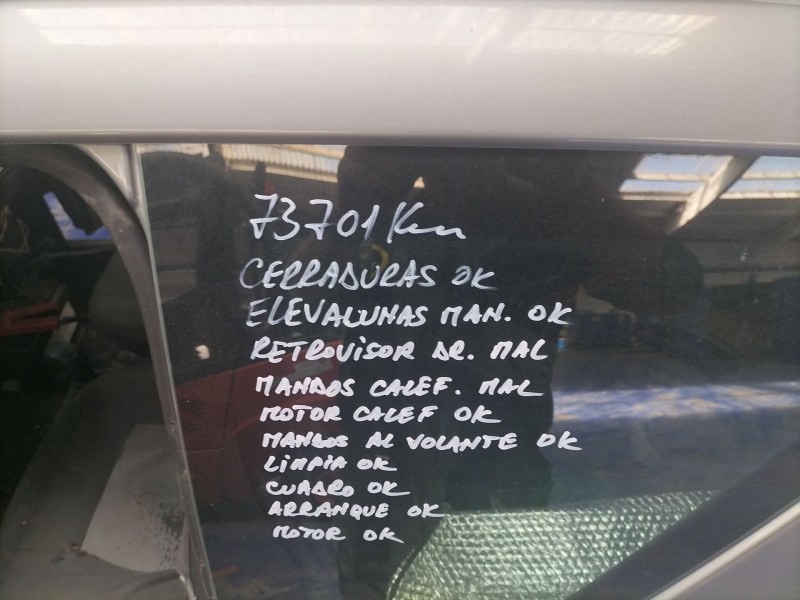 73701 Km
CERRADURAS OK
ELEVALUNAS MAN. OK
RETROVISOR DR. MAL
MANDOS CALEF. MAL
MOTOR CALEF OK
MANDOS AL VOLANTE OK
LIMPIA OK
CUADRO OK
ARRANQUE OK
MOTOR OK